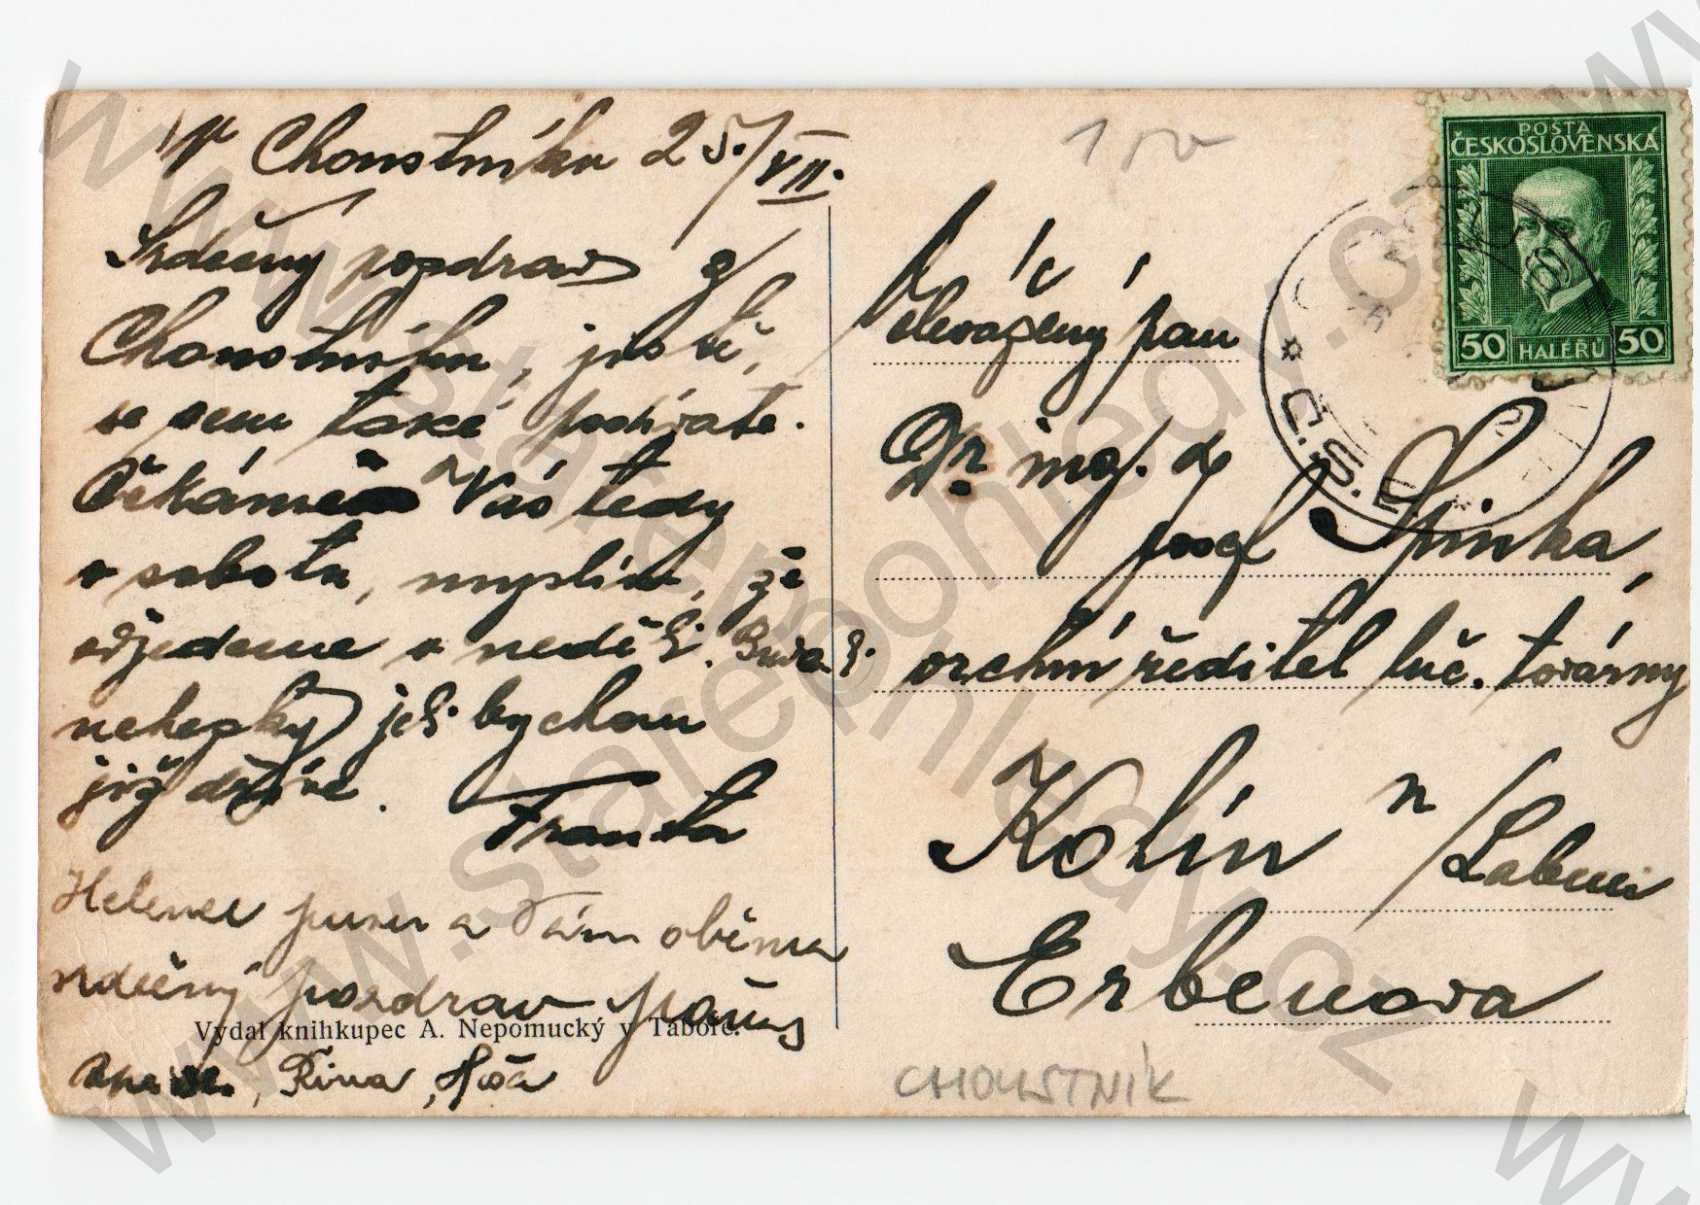 V Choustníku 25./VII.
Srdečný pozdrav z
Choustníku, jistě,
se sem také podíváte.
Čekáme Vás tedy
v sobotu, myslím, že
odjedeme v neděli.
nehezky jeli bychom
již dříve.
Franta
Helence pusu a Vám oběma
srdečný pozdrav
Vydal knihkupec A. Nepomucký v Táboře.
Jiřina,
150
POŠTA
ČESKOSLOVENSKÁ
50 HALÉŘŮ 50
* Č.S.P. *
Velevážený pan
Dr. ing.
Josef Špinka,
vrchní ředitel luč. továrny
Kolín n/Labem
Erbenova
CHOUSTNÍK
www.starepohledy.cz
www.starepohledy.cz